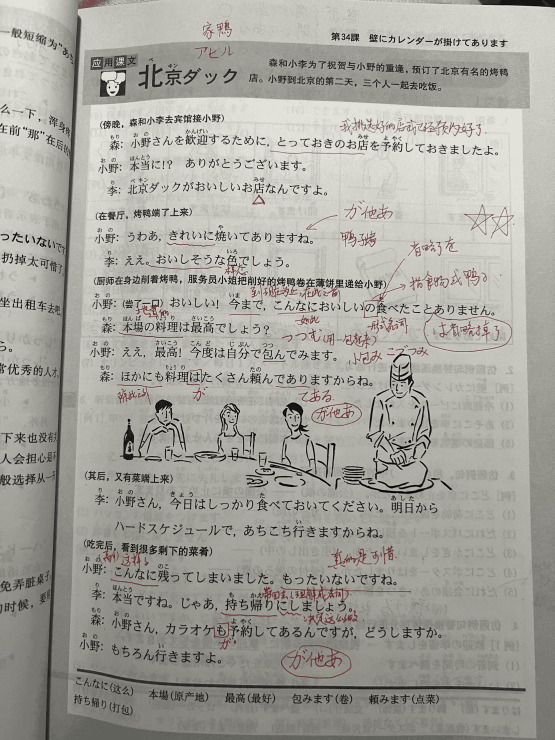 一般短缩为"あち
第34課　壁にカレンダーが掛けてあります
家鴨
アヒル
应用课文
北京ダック
森和小李为了祝贺与小野的重逢，预订了北京有名的烤鸭
店。小野到北京的第二天，三个人一起去吃饭。
(傍晚，森和小李去宾馆接小野)
森：小野さんを歓迎するために，とっておきのお店を予約しておきましたよ。
小野：本当に!?　ありがとうございます。
李：北京ダックがおいしいお店なんですよ。
(在餐厅，烤鸭端了上来)
が他あ
小野：うわあ，きれいに焼いてありますね。
李：ええ。おいしそうな色でしょう。
(厨师在身边削着烤鸭，服务员小姐把削好的烤鸭卷在薄饼里递给小野)
小野：(尝了一口) おいしい! 今まで，こんなにおいしいの食べたことありません。
森：本場の料理は最高でしょう?
小野：ええ，最高! 今度は自分で包んでみます。
つつむ
小包み こづつみ
森：ほかにも料理はたくさん頼んでありますからね。
が
てある
が他あ
(其后，又有菜端上来)
李：小野さん，今日はしっかり食べておいてください。明日から
ハードスケジュールで，あちこち行きますからね。
(吃完后，看到很多剩下的菜肴)
真的是可惜
小野：こんなに残ってしまいました。もったいないですね。
李：本当ですね。じゃあ，持ち帰りにしましょう。
森：小野さん，カラオケも予約してあるんですが，どうしますか。
が
小野：もちろん行きますよ。
が他あ
こんなに(这么)　本場(原产地)　最高(最好)　包みます(卷)　頼みます(点菜)
持ち帰り(打包)